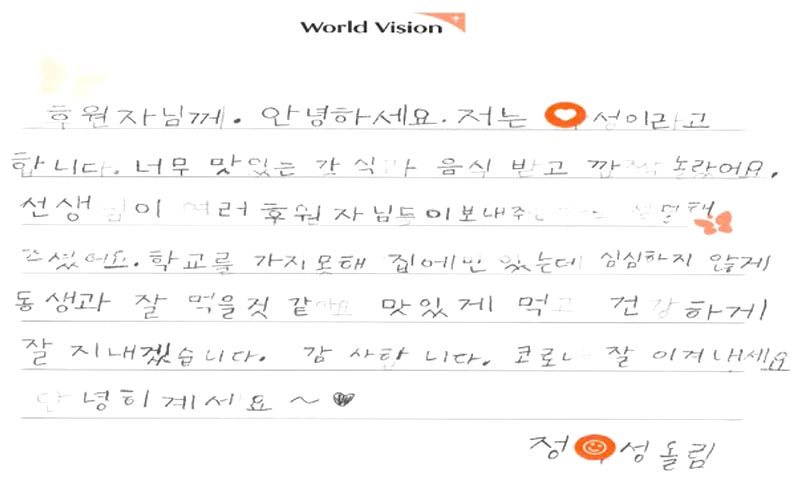 World Vision
후원자님께. 안녕하세요. 저는 성이라고
합니다. 너무 맛있는 간식과 음식 받고 깜짝 놀랐어요.
선생님이 여러 후원자님들이 보내주 설명해
주셨어요. 학교를 가지못해 집에만 있는데 심심하지 않게
동생과 잘 먹을것 같아요 맛있게 먹고 건강하게
잘 지내겠습니다. 감사합니다. 코로나 잘 이겨내세요
안녕히계세요 ~ ♥
정 성올림